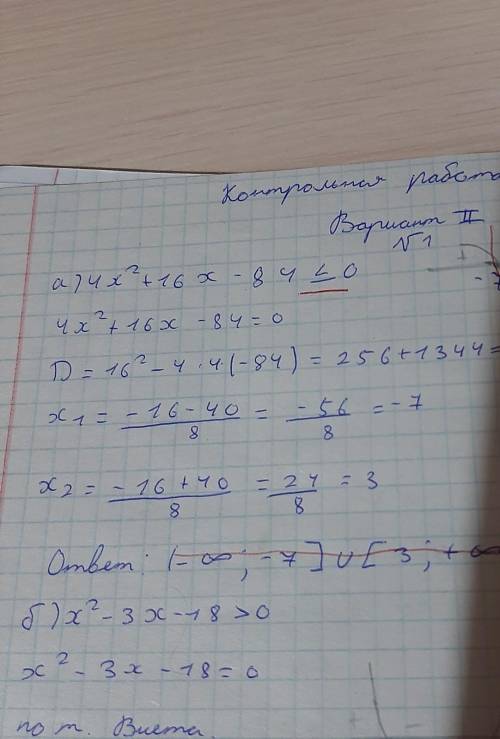 Контрольная работа
Вариант II
№1
а) 4x² + 16x - 84 ≤ 0
4x² + 16x - 84 = 0
D = 16² - 4 · 4 · (-84) = 256 + 1344 =
x₁ = (-16 - 40)/8 = -56/8 = -7
x₂ = (-16 + 40)/8 = 24/8 = 3
Ответ: (-∞; -7] ∪ [3; +∞
б) x² - 3x - 18 > 0
x² - 3x - 18 = 0
по т. Виета.